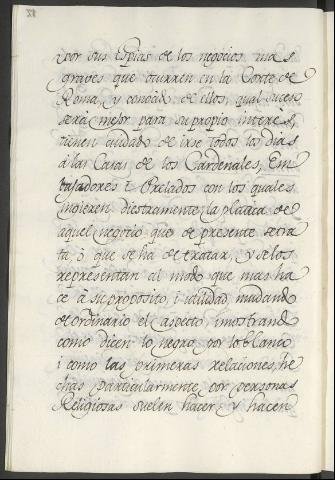 por sus espias de los negocios mas
graves que ocurren en la Corte de
Roma, y conocido de ellos, qual suceso
será mejor para su propio interes,
tienen cuidado de irse todos los dias
á las Casas de los Cardenales, Em
bajadores i Prelados con los quales
ingieren diestramente la platica de
aquel negocio que de presente se tra
ta, ò que se ha de tratar, y se los
representan al modo que mas ha
ce à su proposito, i utilidad, mudando
de ordinario el aspecto, i mostrando
como dicen lo negro por lo blanco
i como las primeras relaciones, he
chas particularmente por personas
Religiosas suelen hacer, y hacen